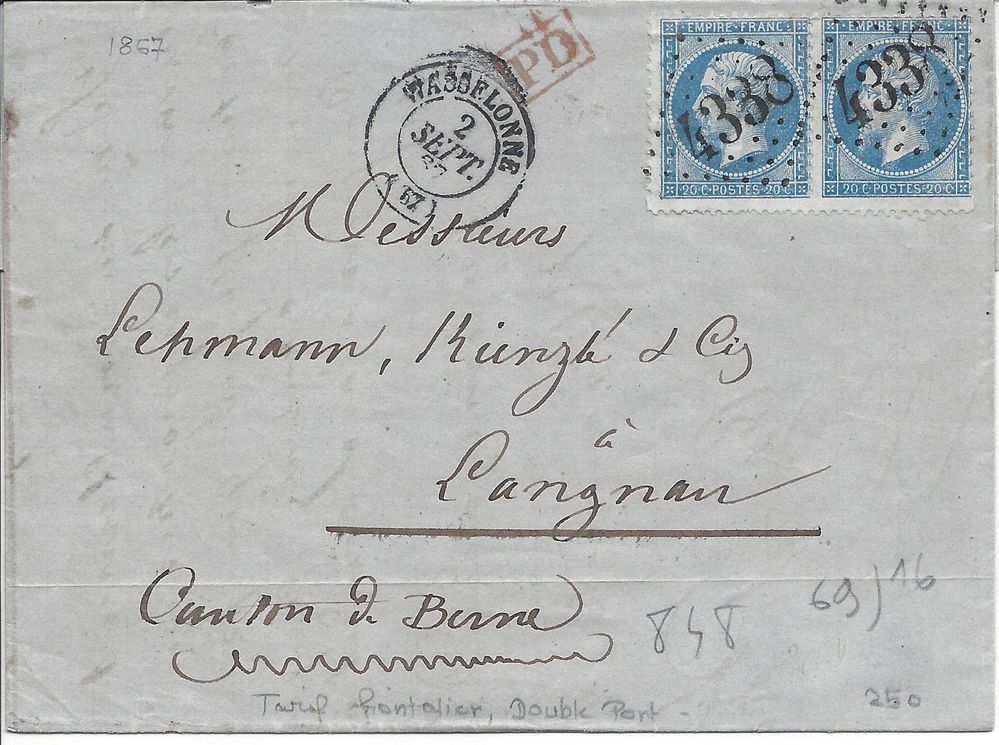 1867
PD
EMPIRE FRANC
EMPIRE FRANC
4338
4338
20 C POSTES 20 C
20 C POSTES 20 C
WASSELONNE
2
SEPT.
67
(67)
Messieurs
Lehmann, Künzlé & Cie
à
Langnau
Canton de Berne
848
69) 16
Tarif frontalier, Double Port -
250